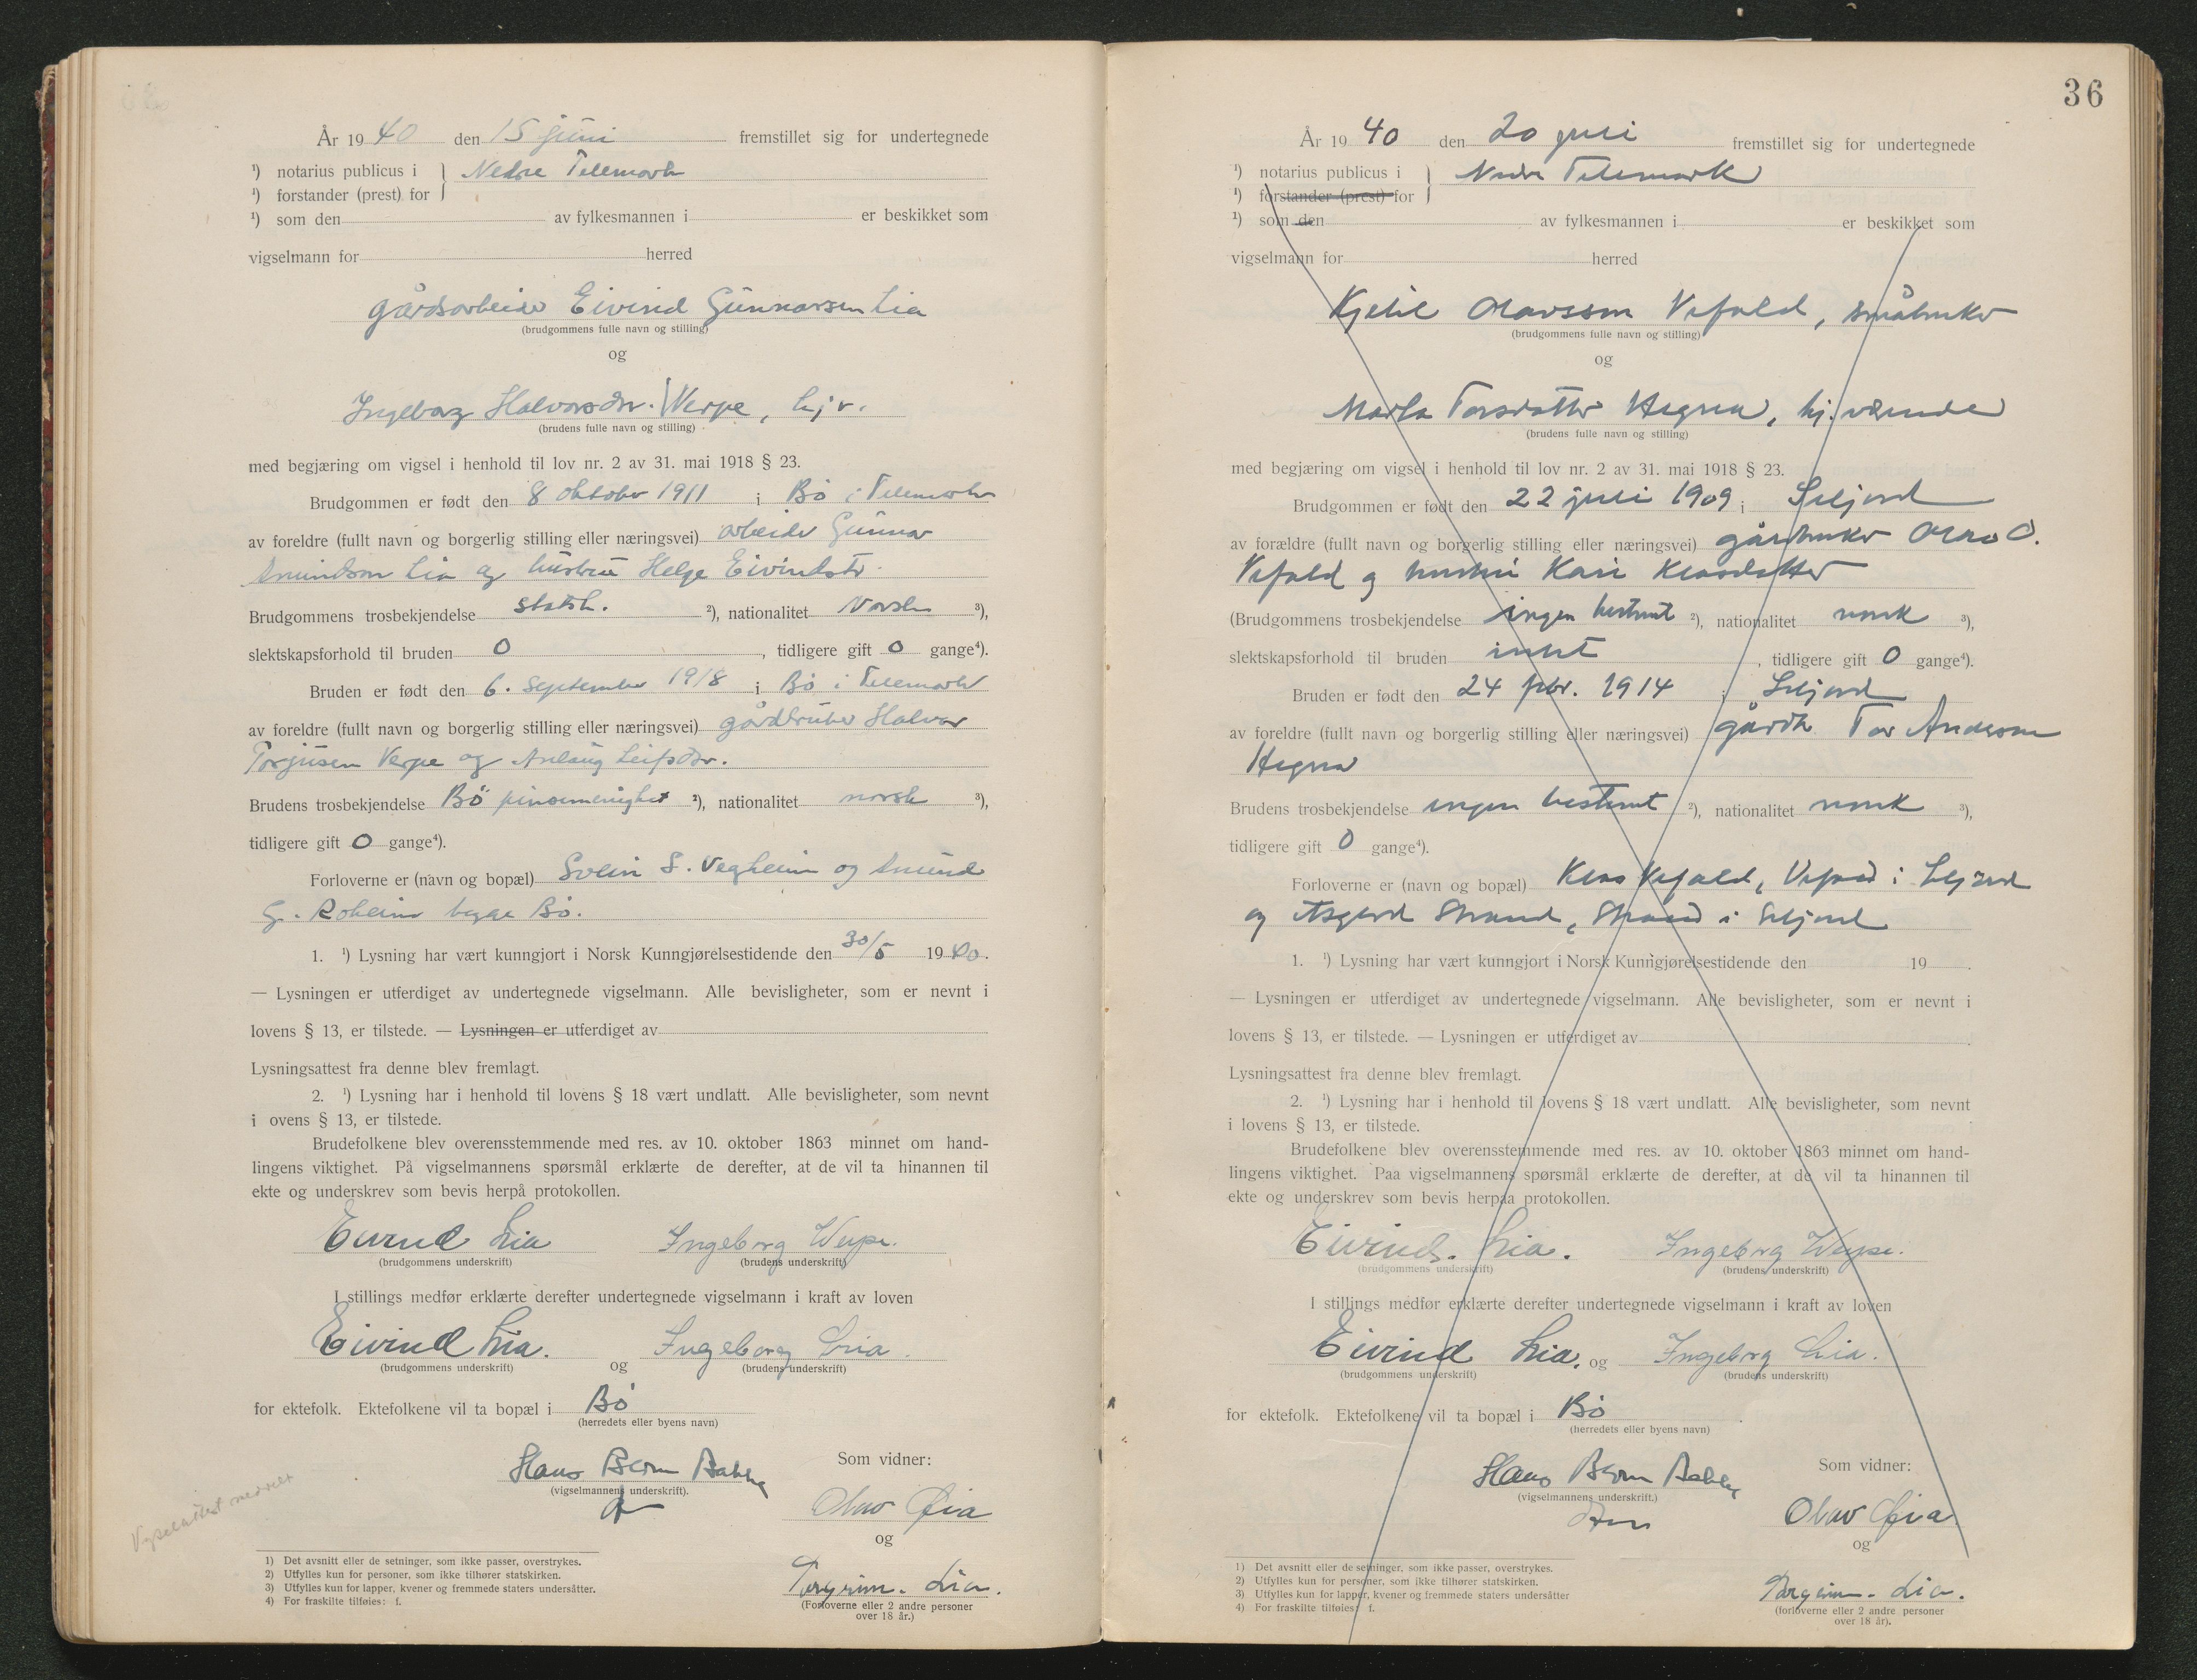 År 19 40 den 15 juni fremstillet sig for undertegnede
¹) notarius publicus i } Nedre Telemark
¹) forstander (prest) for
¹) som den av fylkesmannen i er beskikket som
vigselmann for herred
gårdsarbeider Eivind Gunnarsen Lia
(brudgommens fulle navn og stilling)
og
Ingeborg Halvorsdtr. Verpe, hj.v.
(brudens fulle navn og stilling)
med begjæring om vigsel i henhold til lov nr. 2 av 31. mai 1918 § 23.
Brudgommen er født den 8 oktober 1911 i Bø i Telemark
av foreldre (fullt navn og borgerlig stilling eller næringsvei) arbeider Gunnar
Amundsen Lia og hustru Helge Eivindsdtr.
Brudgommens trosbekjendelse statsk. ²), nationalitet Norsk ³),
slektskapsforhold til bruden 0 , tidligere gift 0 gange⁴).
Bruden er født den 6. September 1918 i Bø i Telemark
av foreldre (fullt navn og borgerlig stilling eller næringsvei) gårdbruker Halvor
Torjusen Verpe og Anlaug Leifsdtr.
Brudens trosbekjendelse Bø pinsemenighet ²), nationalitet norsk ³),
tidligere gift 0 gange⁴).
Forloverne er (navn og bopæl) Svein S. Vegheim og Amund
G. Roheim begge Bø.
1. ¹) Lysning har vært kunngjort i Norsk Kunngjørelsestidende den 30/5 19 40.
— Lysningen er utferdiget av undertegnede vigselmann. Alle bevisligheter, som er nevnt i
lovens § 13, er tilstede. — Lysningen er utferdiget av
Lysningsattest fra denne blev fremlagt.
2. ¹) Lysning har i henhold til lovens § 18 vært undlatt. Alle bevisligheter, som nevnt
i ovens § 13, er tilstede.
Brudefolkene blev overensstemmende med res. av 10. oktober 1863 minnet om hand-
lingens viktighet. På vigselmannens spørsmål erklærte de derefter, at de vil ta hinannen til
ekte og underskrev som bevis herpå protokollen.
Eivind Lia Ingeborg Verpe.
(brudgommens underskrift) (brudens underskrift)
I stillings medfør erklærte derefter undertegnede vigselmann i kraft av loven
Eivind Lia. og Ingeborg Lia.
(brudgommens underskrift) (brudens underskrift)
for ektefolk. Ektefolkene vil ta bopæl i Bø
(herredets eller byens navn)
Hans Bern
(vigselmannens underskrift).
Som vidner:
Olav Øia
og
Torgrim Lia.
(Forloverne eller 2 andre personer
over 18 år.)
Vigselattest meddelt
1) Det avsnitt eller de setninger, som ikke passer, overstrykes.
2) Utfylles kun for personer, som ikke tilhører statskirken.
3) Utfylles kun for lapper, kvener og fremmede staters undersåtter.
4) For fraskilte tilføies: f.
36
År 19 40 den 20 juli fremstillet sig for undertegnede
¹) notarius publicus i } Nedre Telemark
¹) forstander (prest) for
¹) som den av fylkesmannen i er beskikket som
vigselmann for herred
Kjetil Olavsson Vefald, småbruker
(brudgommens fulle navn og stilling)
og
Marta Torsdatter Hegna, hj.værende
(brudens fulle navn og stilling)
med begjæring om vigsel i henhold til lov nr. 2 av 31. mai 1918 § 23.
Brudgommen er født den 22 juli 1909 i Seljord
av forældre (fullt navn og borgerlig stilling eller næringsvei) gårdbruker Olav O.
Vefald og hustru Kari Klasdatter
(Brudgommens trosbekjendelse ingen bestemt ²), nationalitet norsk ³),
slektskapsforhold til bruden intet , tidligere gift 0 gange⁴).
Bruden er født den 24 febr. 1914 i Seljord
av foreldre (fullt navn og borgerlig stilling eller næringsvei) gårdbr. Tor Andersson
Hegna
Brudens trosbekjendelse ingen bestemt ²), nationalitet norsk ³),
tidligere gift 0 gange⁴).
Forloverne er (navn og bopæl) Klas Vefald, Vefald i Seljord
og Asgerd Strand, Strand i Seljord
1. ¹) Lysning har vært kunngjort i Norsk Kunngjørelsestidende den 19 .
— Lysningen er utferdiget av undertegnede vigselmann. Alle bevisligheter, som er nevnt i
lovens § 13, er tilstede. — Lysningen er utferdiget av .
Lysningsattest fra denne blev fremlagt.
2. ¹) Lysning har i henhold til lovens § 18 vært undlatt. Alle bevisligheter, som nevnt
i lovens § 13, er tilstede.
Brudefolkene blev overensstemmende med res. av 10. oktober 1863 minnet om hand-
lingens viktighet. Paa vigselmannens spørsmål erklærte de derefter, at de vil ta hinannen til
ekte og underskrev som bevis herpaa protokollen.
Eivind Lia. Ingeborg Verpe.
(brudgommens underskrift) (brudens underskrift)
I stillings medfør erklærte derefter undertegnede vigselmann i kraft av loven
Eivind Lia. og Ingeborg Lia.
(brudgommens underskrift) (brudens underskrift)
for ektefolk. Ektefolkene vil ta bopæl i Bø .
(herredets eller byens navn)
Hans Bern
(vigselmannens underskrift.)
Som vidner:
Olav Øia
og
Torgrim Lia.
(forloverne eller 2 andre personer
over 18 år).
1) Det avsnitt eller de setninger, som ikke passer, overstrykes.
2) Utfylles kun for personer, som ikke tilhører statskirken.
3) Utfylles kun for lapper, kvener og fremmede staters undersåtter
4) For fraskilte tilføies: f.